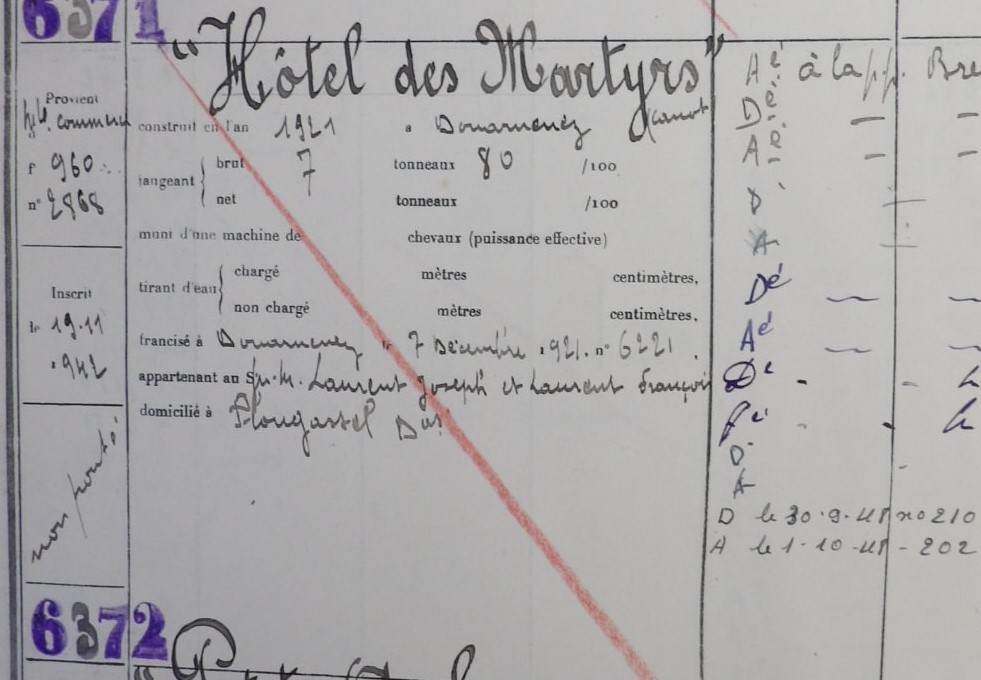 6371
"Hôtel des Martyrs"
Provient
f° 960
n° 2868
Inscrit
le 19.11
1942
non ponté
construit en l'an 1921 à Douarnenez (canot
jaugeant brut 7 tonneaux 80 /100
net tonneaux /100
muni d'une machine de chevaux (puissance effective)
tirant d'eau chargé mètres centimètres,
non chargé mètres centimètres,
francisé à Douarnenez le 7 Décembre 1921. n° 6221.
appartenant au Laurent Joseph et Laurent François
domicilié à Plougastel
Aé à la Bre
Dé — —
Aé — —
D
A
Dé
Aé
Dé
D
A
D le 30.9. no 210
A le 1-10 - 202
6372